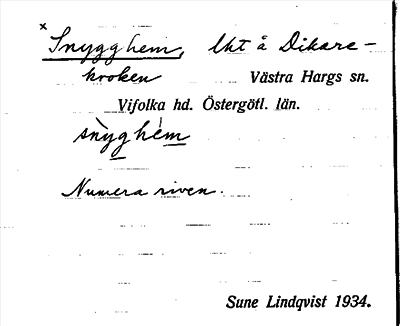 x Snygghem, Lht å Dikare-
kroken Västra Hargs sn.
Vifolka hd. Östergötl. län.
snỳghèm
Numera riven.
Sune Lindqvist 1934.